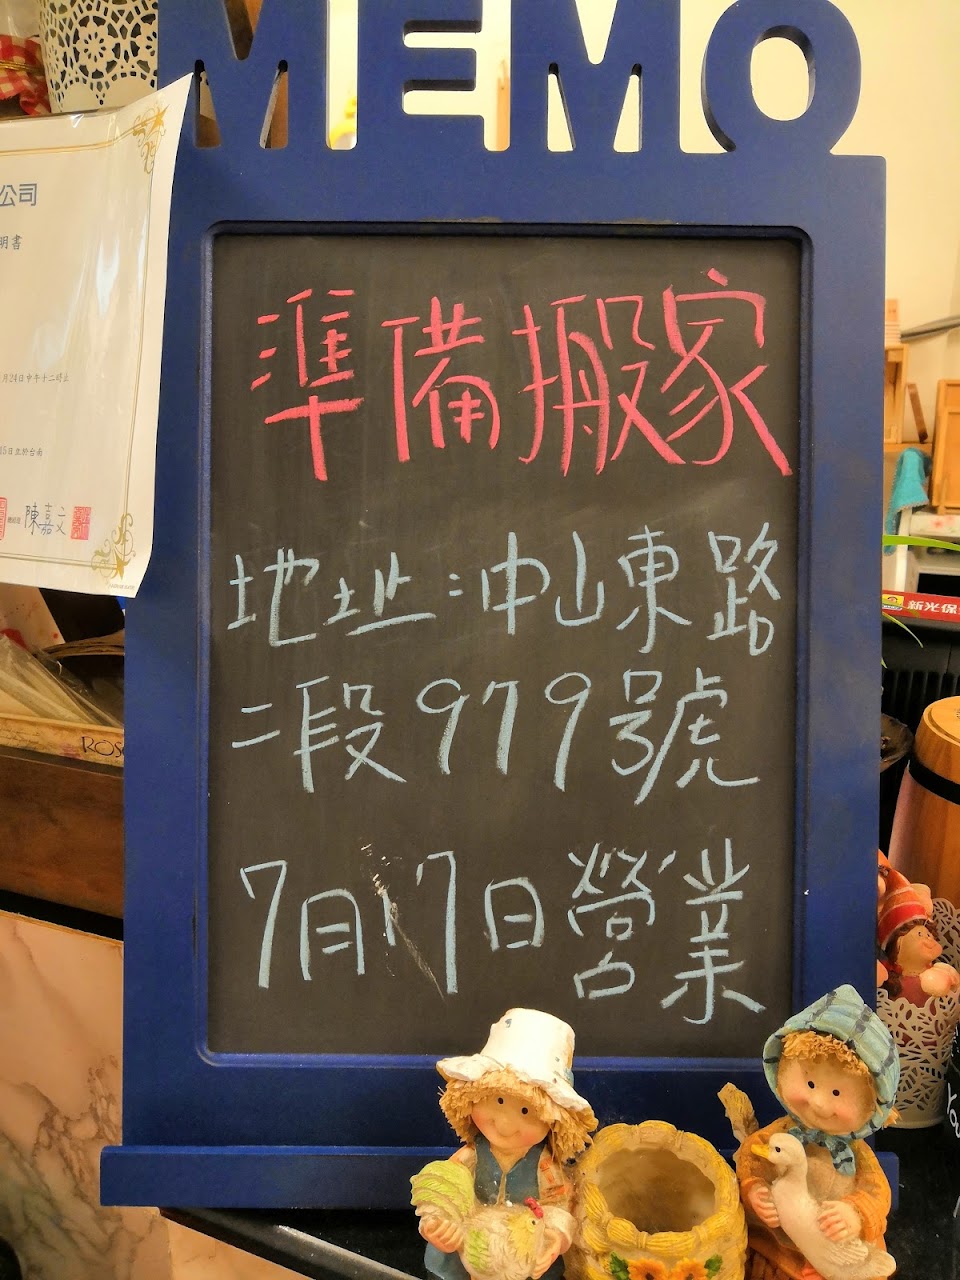 MEMO
公司
明書
月24日中午十二時止
5日立於台南
陳嘉文
準備搬家
地址:中山東路
二段979號
7月17日營業
新光保
ROS